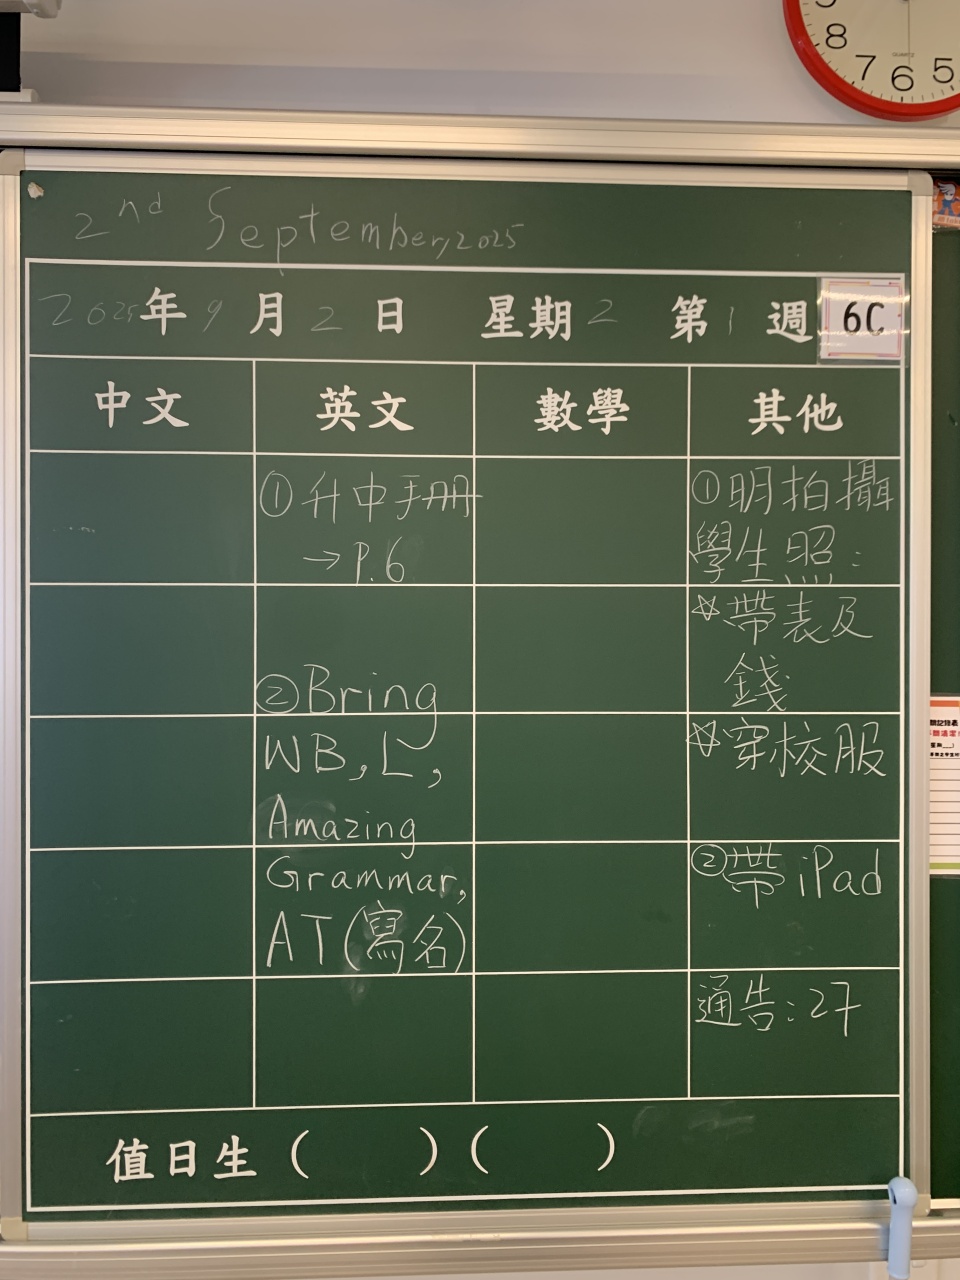 8 7 6 5
2nd September, 2025
2025年9月2日 星期2 第1週 6C
中文 英文 數學 其他
①升中手冊
→P.6
②Bring
WB, L,
Amazing
Grammar,
AT(寫名)
①明拍攝
學生照:
☆帶表及
錢
☆穿校服
②帶iPad
通告:27
值日生( )( )